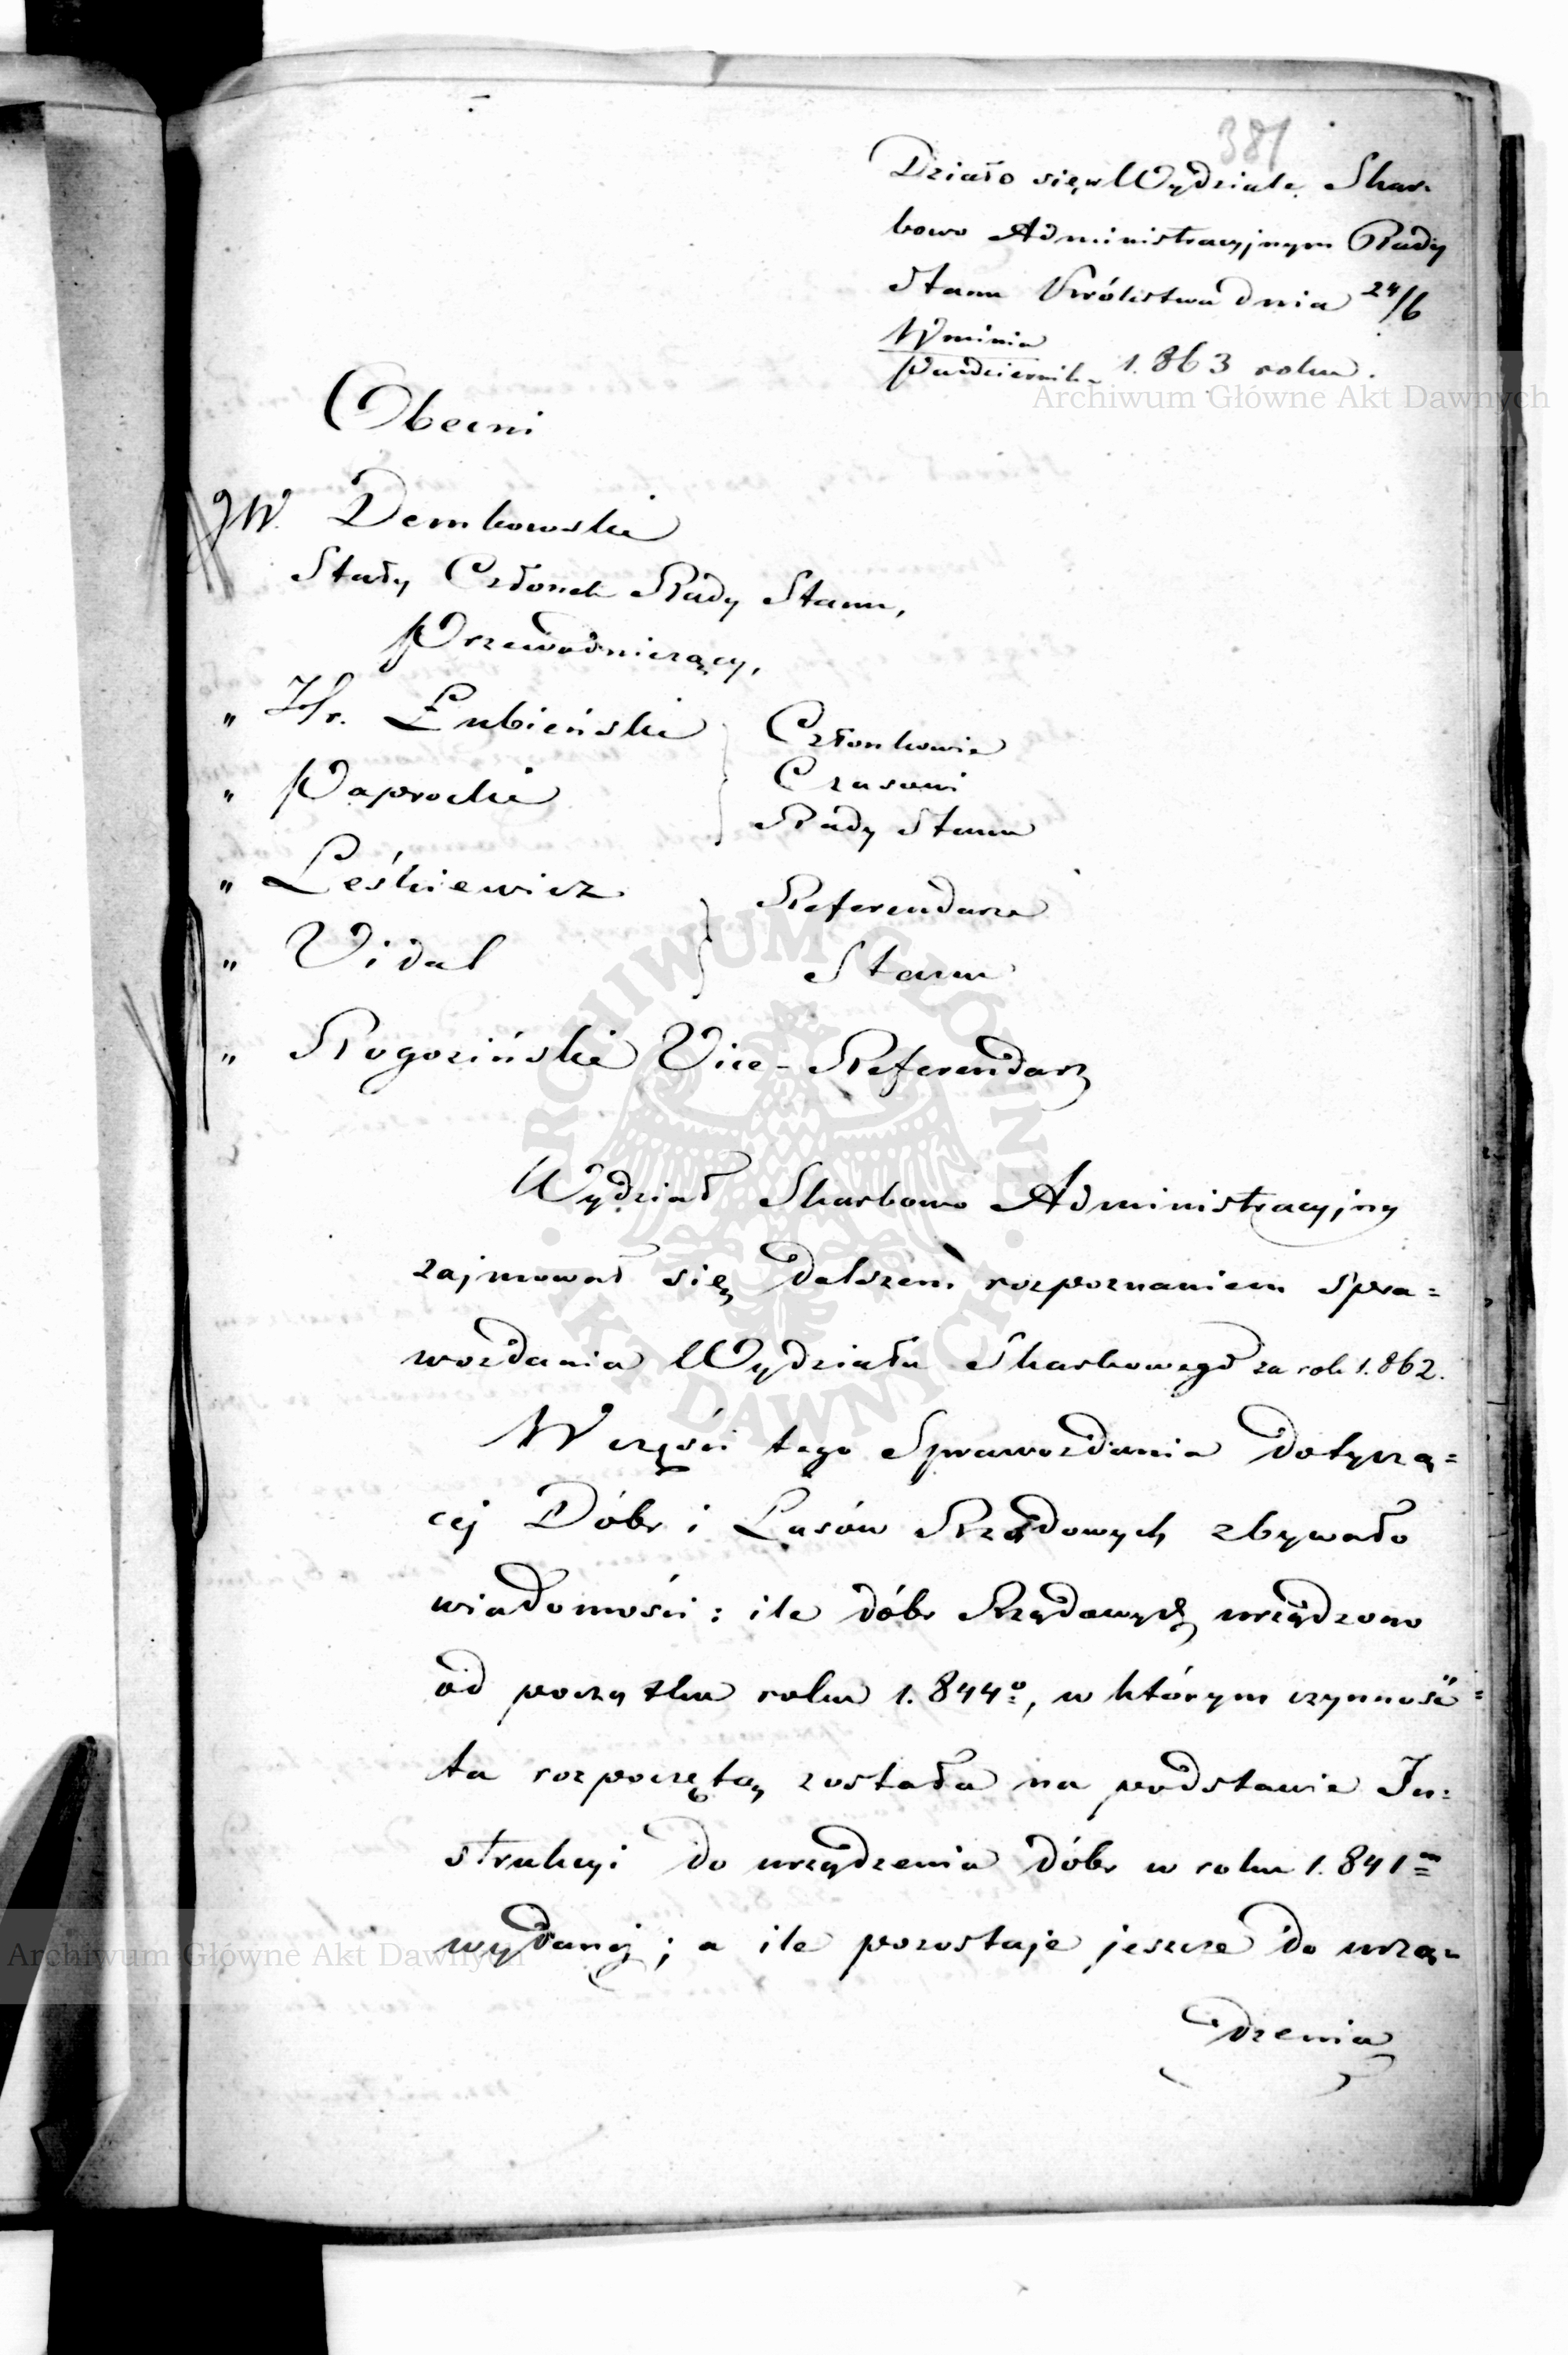 381
Działo się w Wydziale Skar-
bowo Administracyjnym Rady
Stanu Królestwa dnia 24/6
Września
Października 1.863 roku.
Obecni
JW. Dembowski
Stały Członek Rady Stanu,
Przewodniczący,
" Hr. Łubieński Członkowie
Czasowi
" Paprocki
Rady Stanu
" Leśkiewicz Referendarze
" Vidal Stanu
" Rogoziński Vice-Referendarz
Wydział Skarbowo Administracyjny
zajmował się dalszem rozpoznaniem Spra=
wozdania Wydziału Skarbowego za rok 1.862.
W części tego Sprawozdania dotyczą=
cej Dóbr i Lasów Rządowych zbywało
wiadomości: ile dóbr Rządowych urządzono
od początku roku 1.844º, w którym czynność
ta rozpoczętą została na podstawie In=
strukcyi do urządzenia dóbr w roku 1.841m
wydanéj; a ile pozostaje jeszcze do urzą=
dzenia
Archiwum Główne Akt Dawnych
Archiwum Główne Akt Dawnych
ARCHIWUM GŁÓWNE AKT DAWNYCH